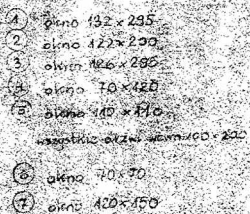 1 okno 132 x 295
2 okno 122 x 290
3 okno 126 x 290
4 okno 70 x 120
5 okno 110 x 110
wszystkie 100 x 200
6 okno 70 x 70
7 okno 120 x 150